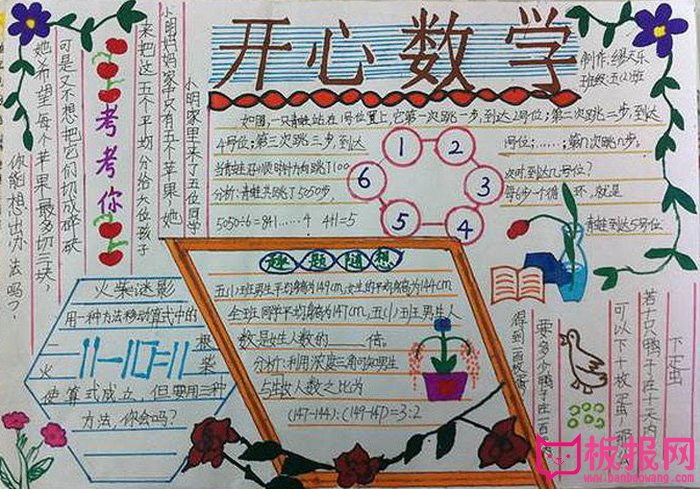 开心数学
制作:缪天乐
班级:五(2)班
如图,一只青蛙站在1号位置上,它第一次跳一步,到达2号位;第二次跳二步,到达
4号位;第三次跳三步,到达
1号位;……;第n次跳n步。
当青蛙沿顺时针方向跳了100
次时,到达几号位?
分析:青蛙共跳了5050步,
每6步一个循环,就是
5050÷6=841……4 4+1=5
青蛙到达5号位
1
2
3
4
5
6
考考你
小明家里来了五位同学
小明妈妈家中只有五个苹果,她
来把这五个平均分给六位孩子
可是又不想把它们切成碎块
她希望每个苹果最多切三块,
你能想出办法吗?
火柴谜影
用一种方法移动算式中的一根
火柴
使算式成立,但要用三种
方法,你会吗?
趣题随想
五(2)班男生平均身高为149cm,女生的平均身高为144cm
全班同学平均身高为147cm,五(2)班男生人
数是女生人数的____倍。
分析:利用浓度三角可知男生
与女生人数之比为
(147-144):(149-147)=3:2
下蛋
若十只鸭子在十天内
可以下十枚蛋,那么
要多少鸭子在一百天
得到一百枚蛋?
板报网
www.banbaowang.com